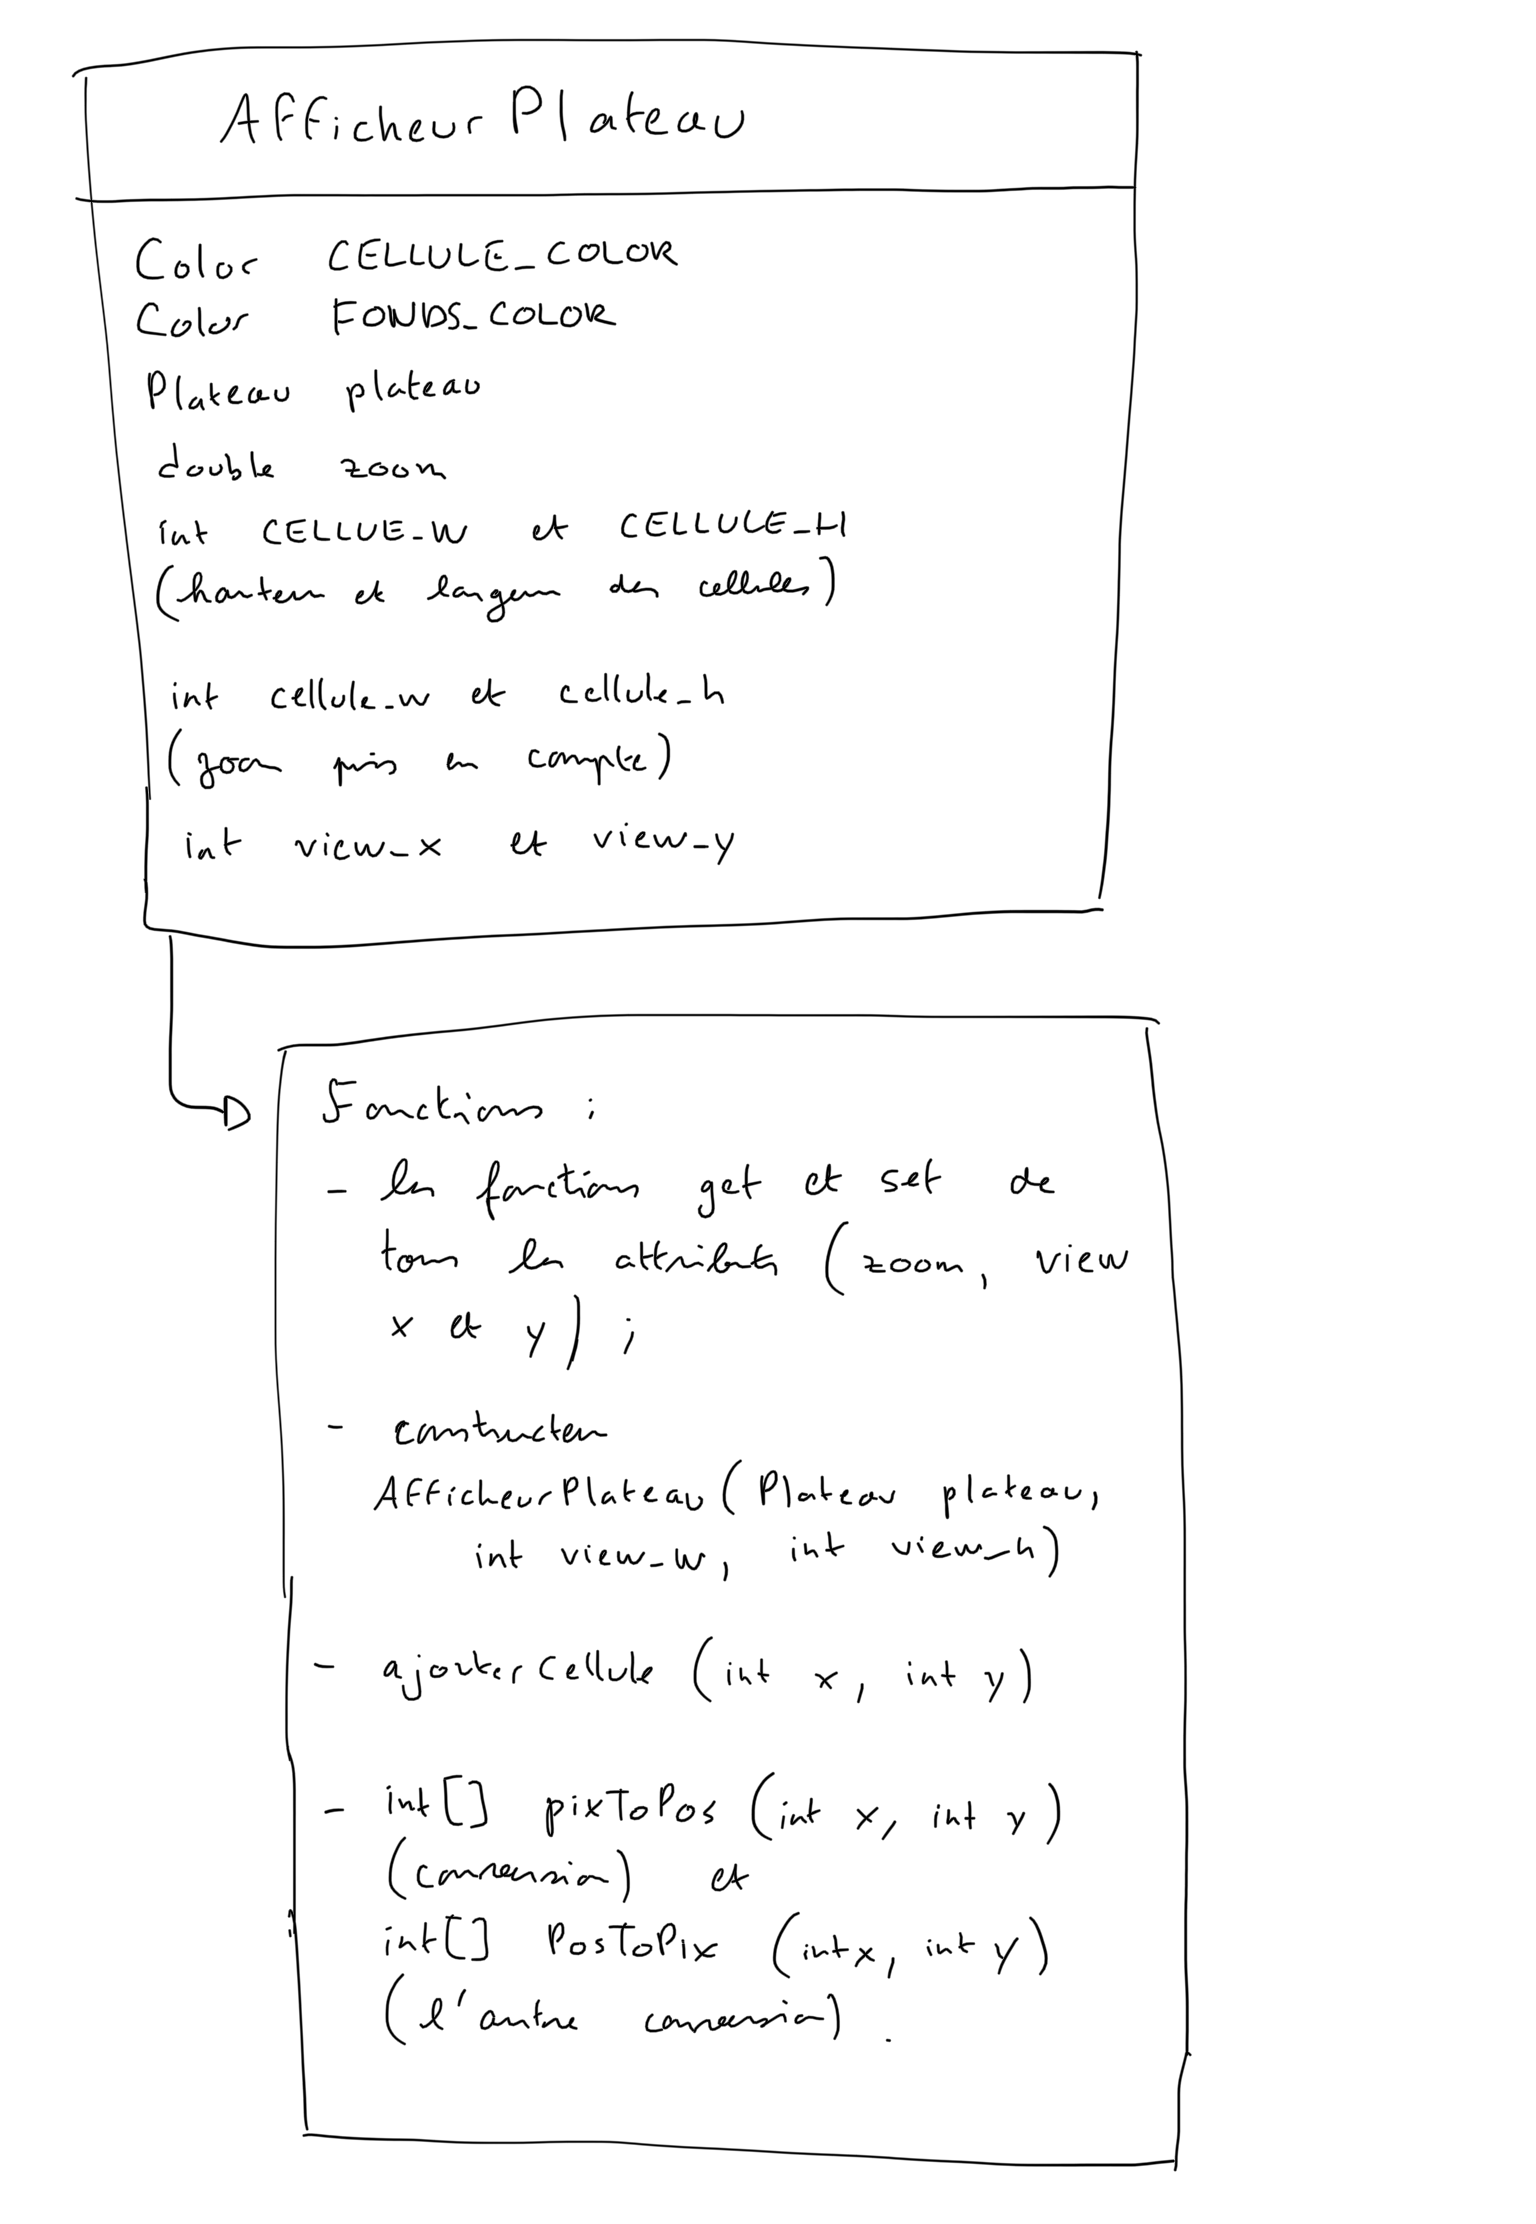 AfficheurPlateau
Color CELLULE_COLOR
Color FONDS_COLOR
Plateau plateau
double zoom
int CELLUE_W et CELLULE_H
(hauteur et largeur des cellules)
int cellule_w et cellule_h
(zoom pris en compte)
int view_x et view_y
Fonctions :
- les fonctions get et set de
tous les attributs (zoom, view
x et y) ;
- constructeur
AfficheurPlateau (Plateau plateau,
int view_w, int view_h)
- ajouterCellule (int x, int y)
- int[] pixToPos (int x, int y)
(conversion) et
int[] PosToPix (int x, int y)
(l'autre conversion).